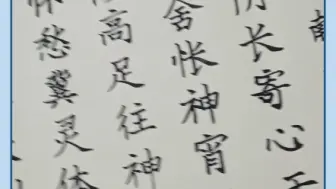 长寄心
舍怅神宵
高足往神
愁冀灵体